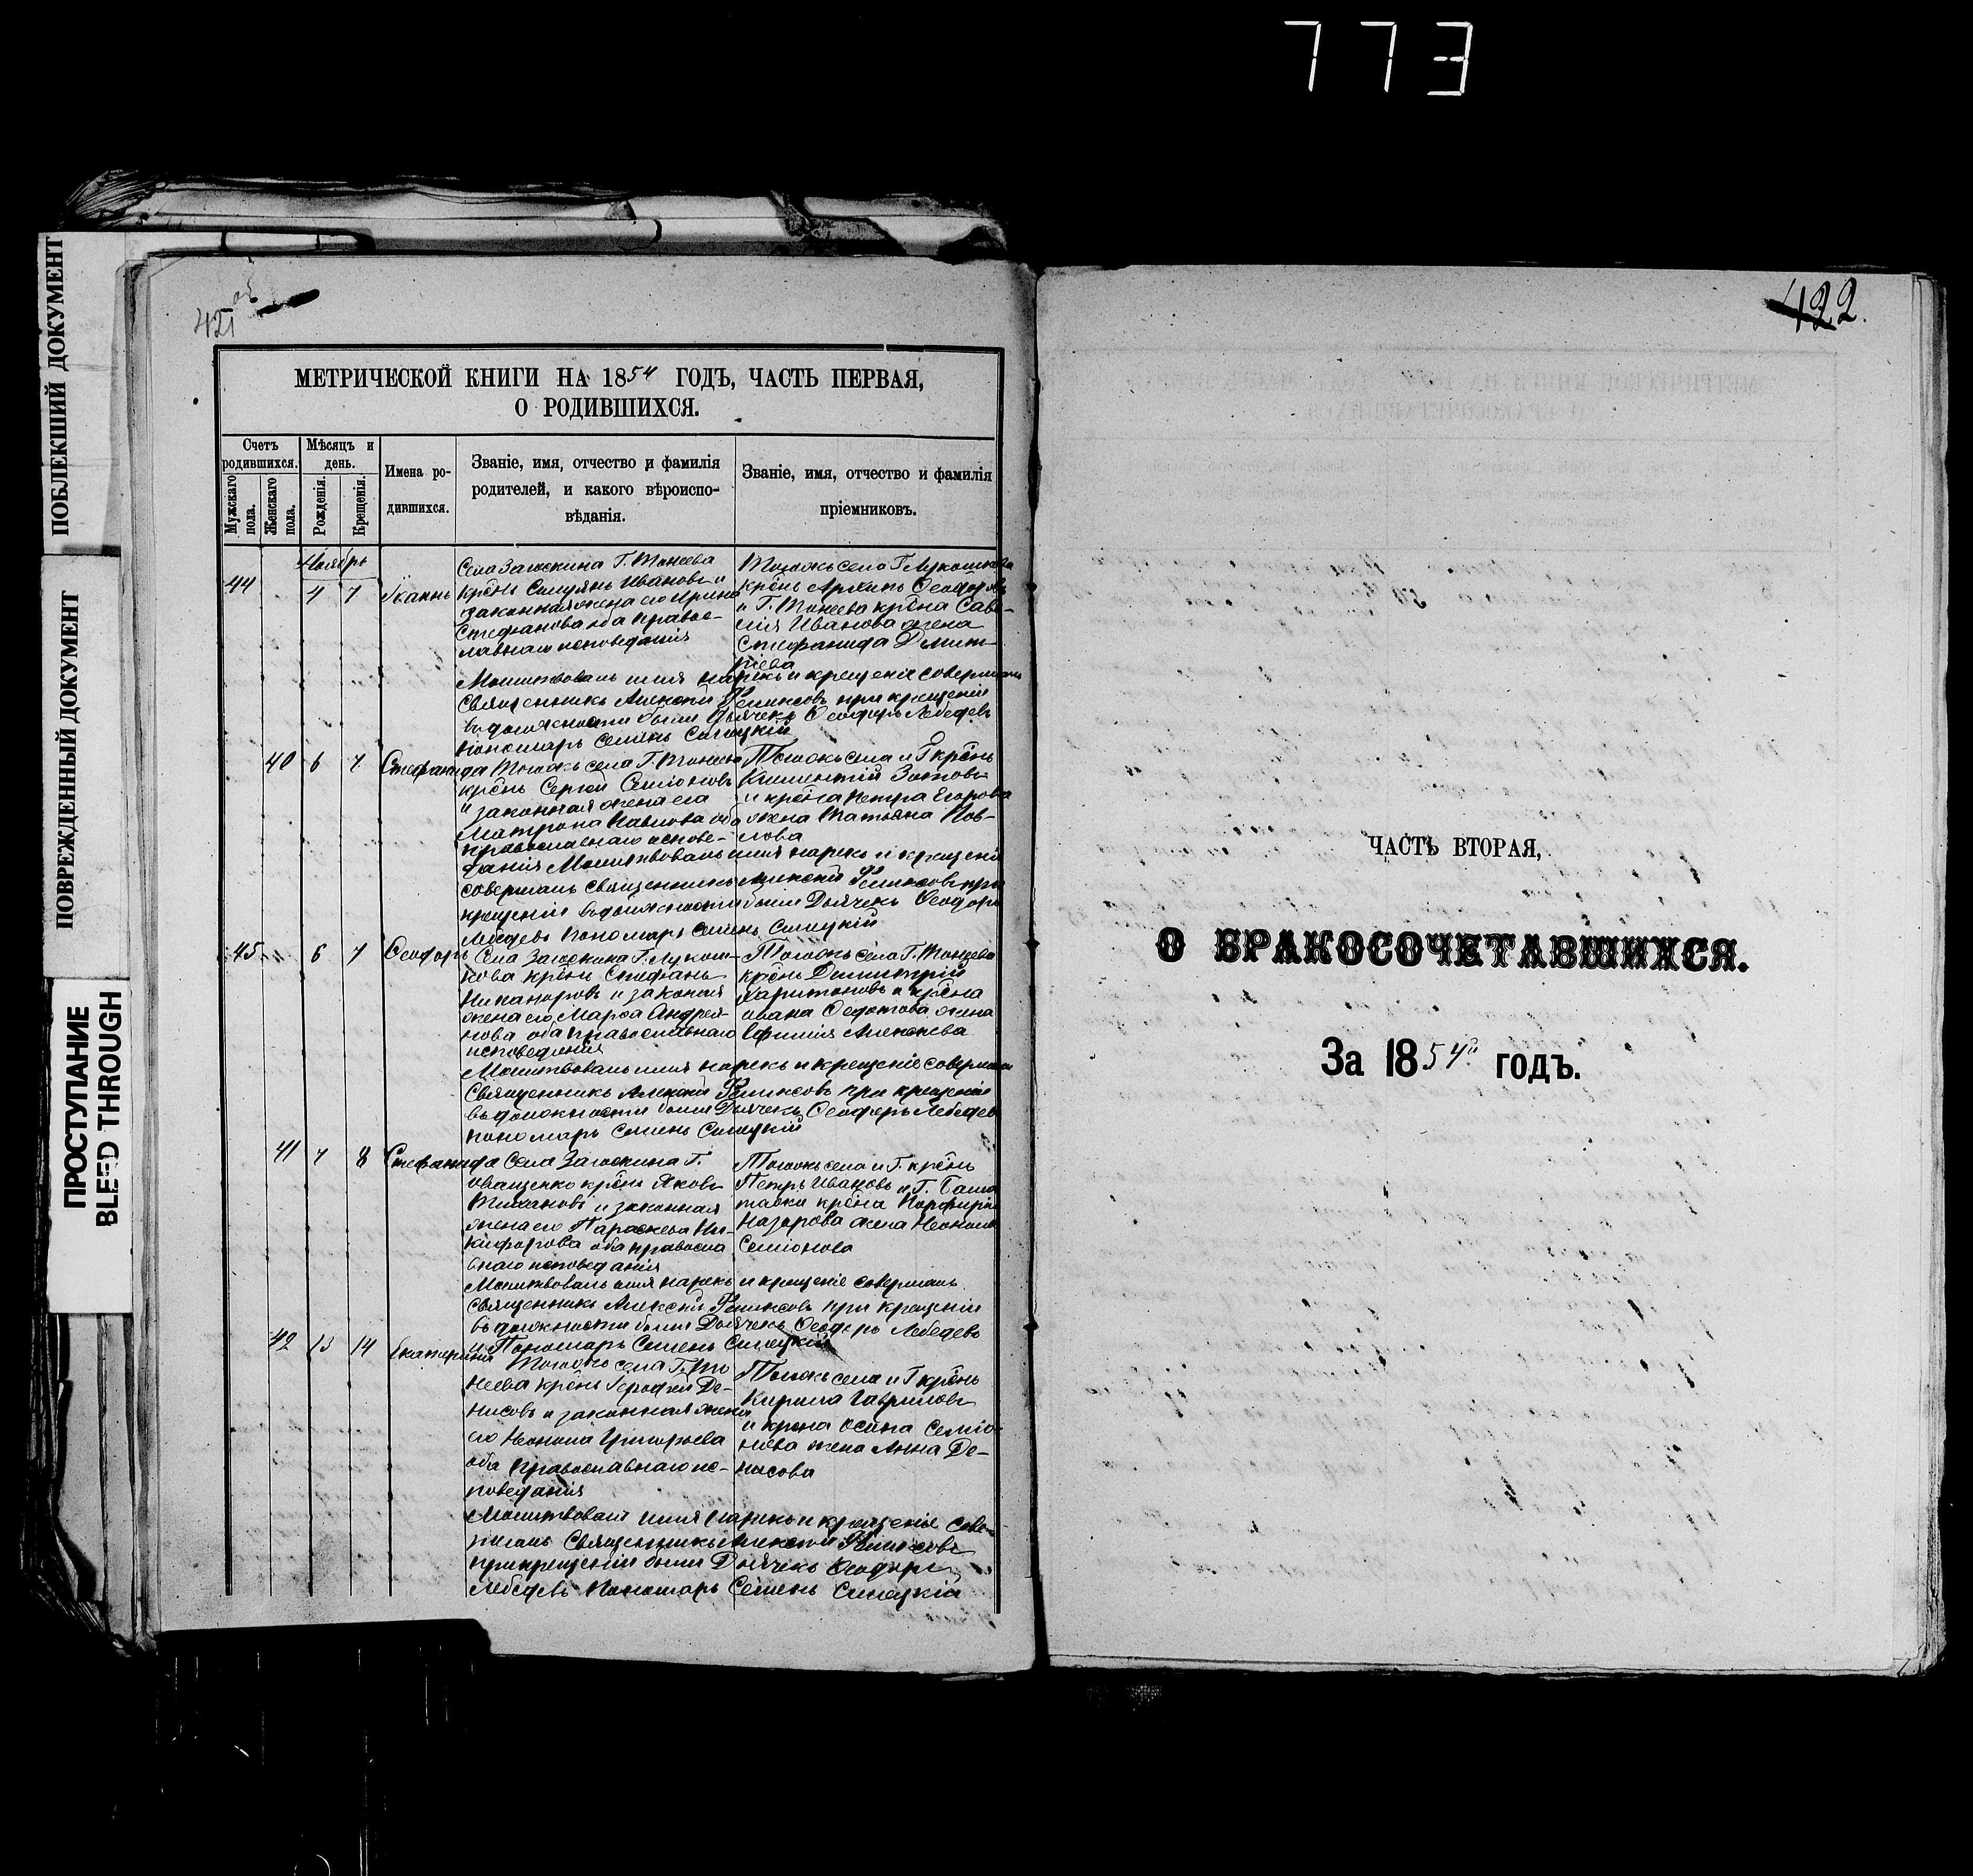 773
ПОБЛЕКШИЙ ДОКУМЕНТ
ПОВРЕЖДЕННЫЙ ДОКУМЕНТ
ПРОСТУПАНИЕ
BLEED THROUGH
421 об
МЕТРИЧЕСКОЙ КНИГИ НА 1854 ГОДЪ, ЧАСТЬ ПЕРВАЯ,
О РОДИВШИХСЯ.
Счетъ родившихся.
Мужскаго пола.
Женскаго пола.
Мѣсяцъ и день.
Рожденія.
Крещенія.
Имена родившихся.
Званіе, имя, отчество и фамилія
родителей, и какого вѣроиспо-
вѣданія.
Званіе, имя, отчество и фамилія
пріемниковъ.
Ноябрь
44 4 7 Іоаннъ
Села Загоскина Г. Тонеева
крѐнъ Ивановъ и
законная жена его Ирина
Стефанова оба правос-
лавнаго исповеданія
Тогожъ села Г Лукошкова
крѐнъ Архипъ Ѳеодоровъ
и Г. Тонеева крѐна Саве-
лія Иванова жена
Стефанида Дмит-
ріева
Молитвовалъ имя нарекъ и крещеніе совершалъ
Священникъ Алексѣй Феликсовъ при крещеніи
въ должности были Дьячекъ Ѳеодоръ Лебедевъ
пономарь Семенъ
40 6 7 Стефанида
Тогожъ села Г. Тонеева
крѐнъ Сергей Семіоновъ
и законная жена его
Матрона Павлова оба
православнаго испове-
данія
Тогожъ села и Г крѐнъ
Климентій Зотовъ
и крѐна Петра Егорова
жена Татьяна Пав-
лова
Молитвовалъ имя нарекъ и крещеніе
совершалъ священникъ Алексѣй Феликсовъ при
крещеніи въ должности были Дьячекъ Ѳеодоръ
Лебедевъ пономарь Семенъ
45 6 7 Ѳеодоръ
Села Загоскина Г. Лукош-
кова крѐнъ Стефанъ
Никаноровъ и законая
жена его Марѳа Андрея-
нова оба православнаго
исповеданія
Тогожъ села Г. Тонеева
крѐнъ Димитрій
Харитоновъ и крѐна
Ивана Ѳедотова жена
Ефимія Алексѣева
Молитвовалъ имя нарекъ и крещеніе совершалъ
Священникъ Алексѣй Феликсовъ при крещеніи
въ должности были Дьячекъ Ѳеодоръ Лебедевъ
пономарь Семенъ
41 7 8 Стефанида
Села Загоскина Г.
Иващенко крѐнъ Яковъ
и законная
жена его Параскева Ни-
кифорова оба правосла
внаго исповеданія
Тогожъ села и Г. крѐнъ
Петръ Ивановъ и Г.
крѐна Порфирія
Назарова жена Неонила
Семіонова
Молитвовалъ имя нарекъ и крещеніе совершалъ
Священникъ Алексѣй Феликсовъ при крещеніи
въ должности были Дьячекъ Ѳеодоръ Лебедевъ
и Пономарь Семенъ
42 13 14 Екатерина
Тогожъ села Г. То
неева крѐнъ Ерофей Де-
нисовъ и законная жена
его Неонила Григорьева
оба православнаго ис-
поведанія
Тогожъ села и Г крѐнъ
Кирила Гавриловъ
и крѐна Осипа Семіо-
нова жена Анна Де-
нисова
Молитвовалъ имя нарекъ и крещеніе сове-
ршалъ Священникъ Алексѣй Феликсовъ
при крещеніи были Дьячекъ Ѳеодоръ
Лебедевъ Пономарь Семенъ
422.
ЧАСТЬ ВТОРАЯ,
О БРАКОСОЧЕТАВШИХСЯ.
За 1854й годъ.